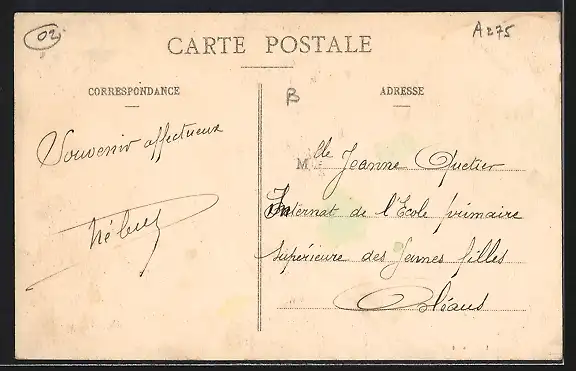 02
A275
CARTE POSTALE
CORRESPONDANCE
B
ADRESSE
Souvenir affectueux
Mlle Jeanne Quetier
Internat de l'Ecole primaire
supérieure des Jeunes filles
Orléans